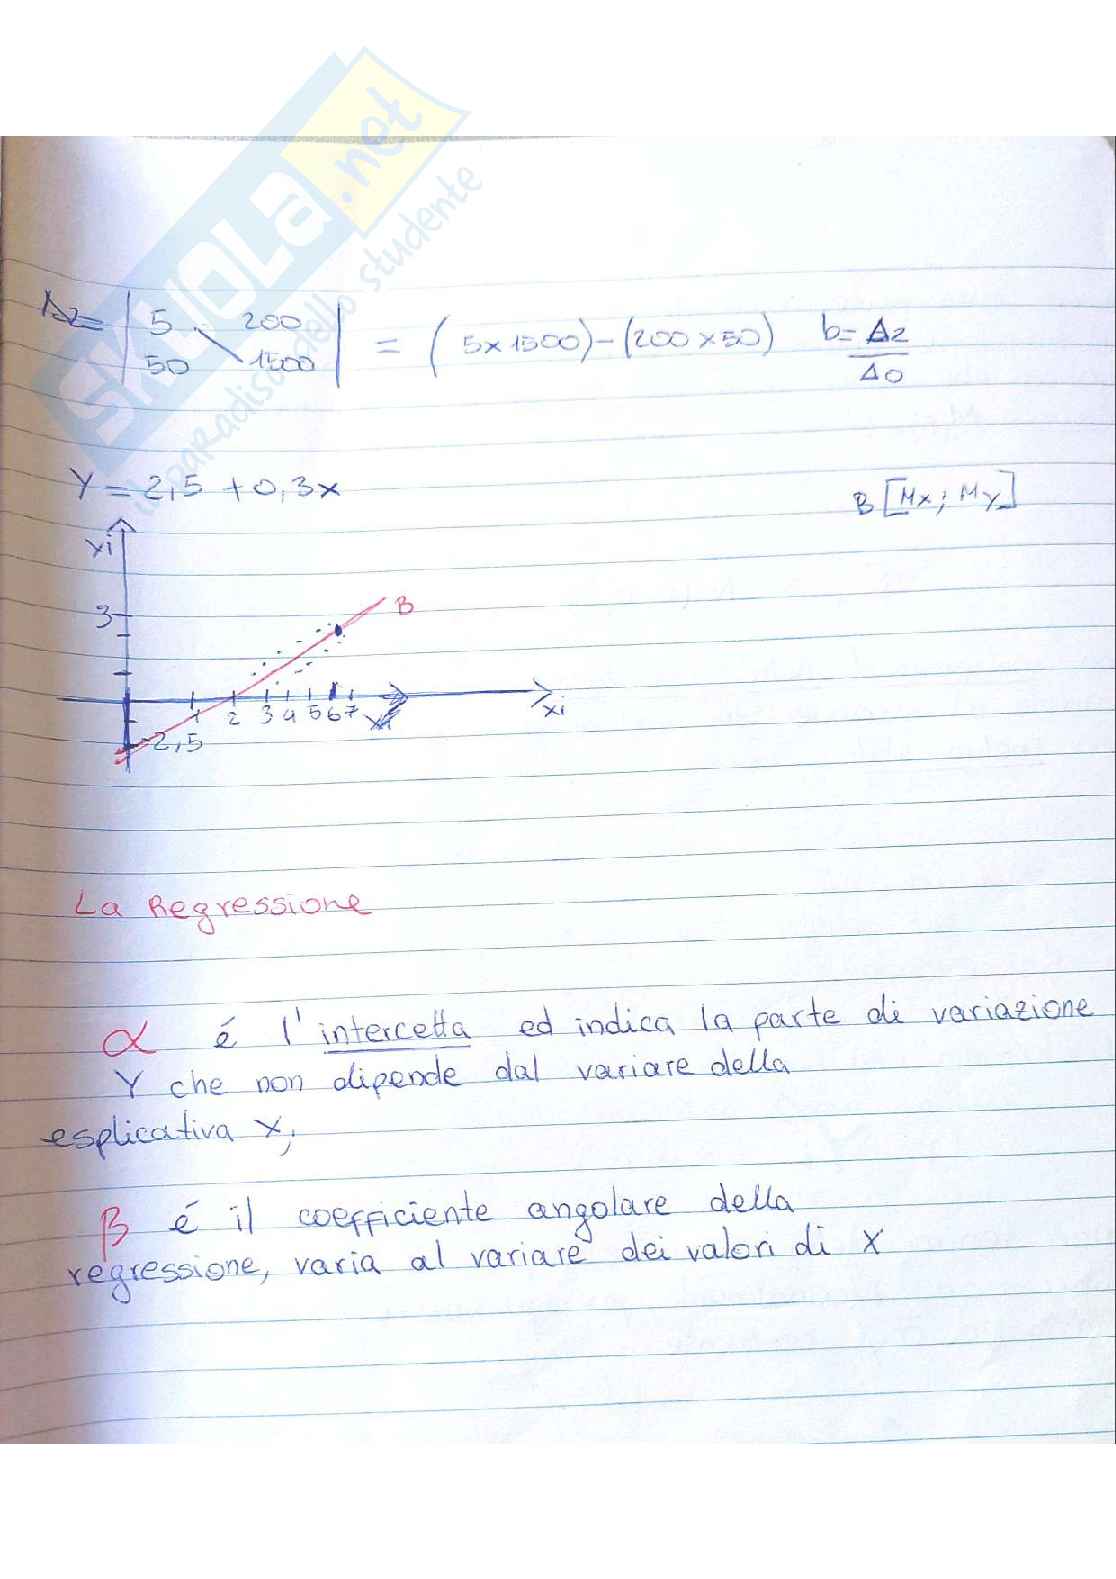 SKUOLA.net
il paradiso dello studente
Δ2= | 5 200 | = (5x1500)-(200x50) b= Δ2
50 1500 Δ0
Y = 2,5 +0,3x
B [Mx; My]
yi
3
B
1 2 3 4 5 6 7
xi
-2,5
La Regressione
α é l'intercetta ed indica la parte di variazione
Y che non dipende dal variare della
esplicativa X;
β é il coefficiente angolare della
regressione, varia al variare dei valori di X